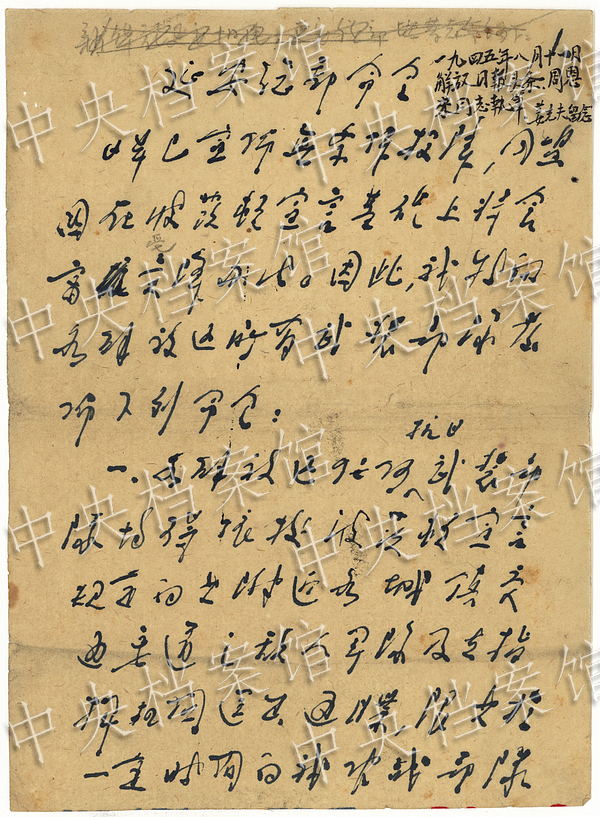 延安总部命令
一九四五年八月十一日
解放日报头条。周恩
来同志
日本已宣佈无条件投降，同盟
国在波茨坦宣言基础上将会
商受降办法。因此，我特向
各解放区所有武装部队发
佈下列命令：
一、各解放区任何抗日武装部
队均得依据波茨坦宣言
规定向其附近各城镇交
通要道之敌人军队及其指
挥机关送出通牒，限其于
一定时间向我作战部队
中央档案馆